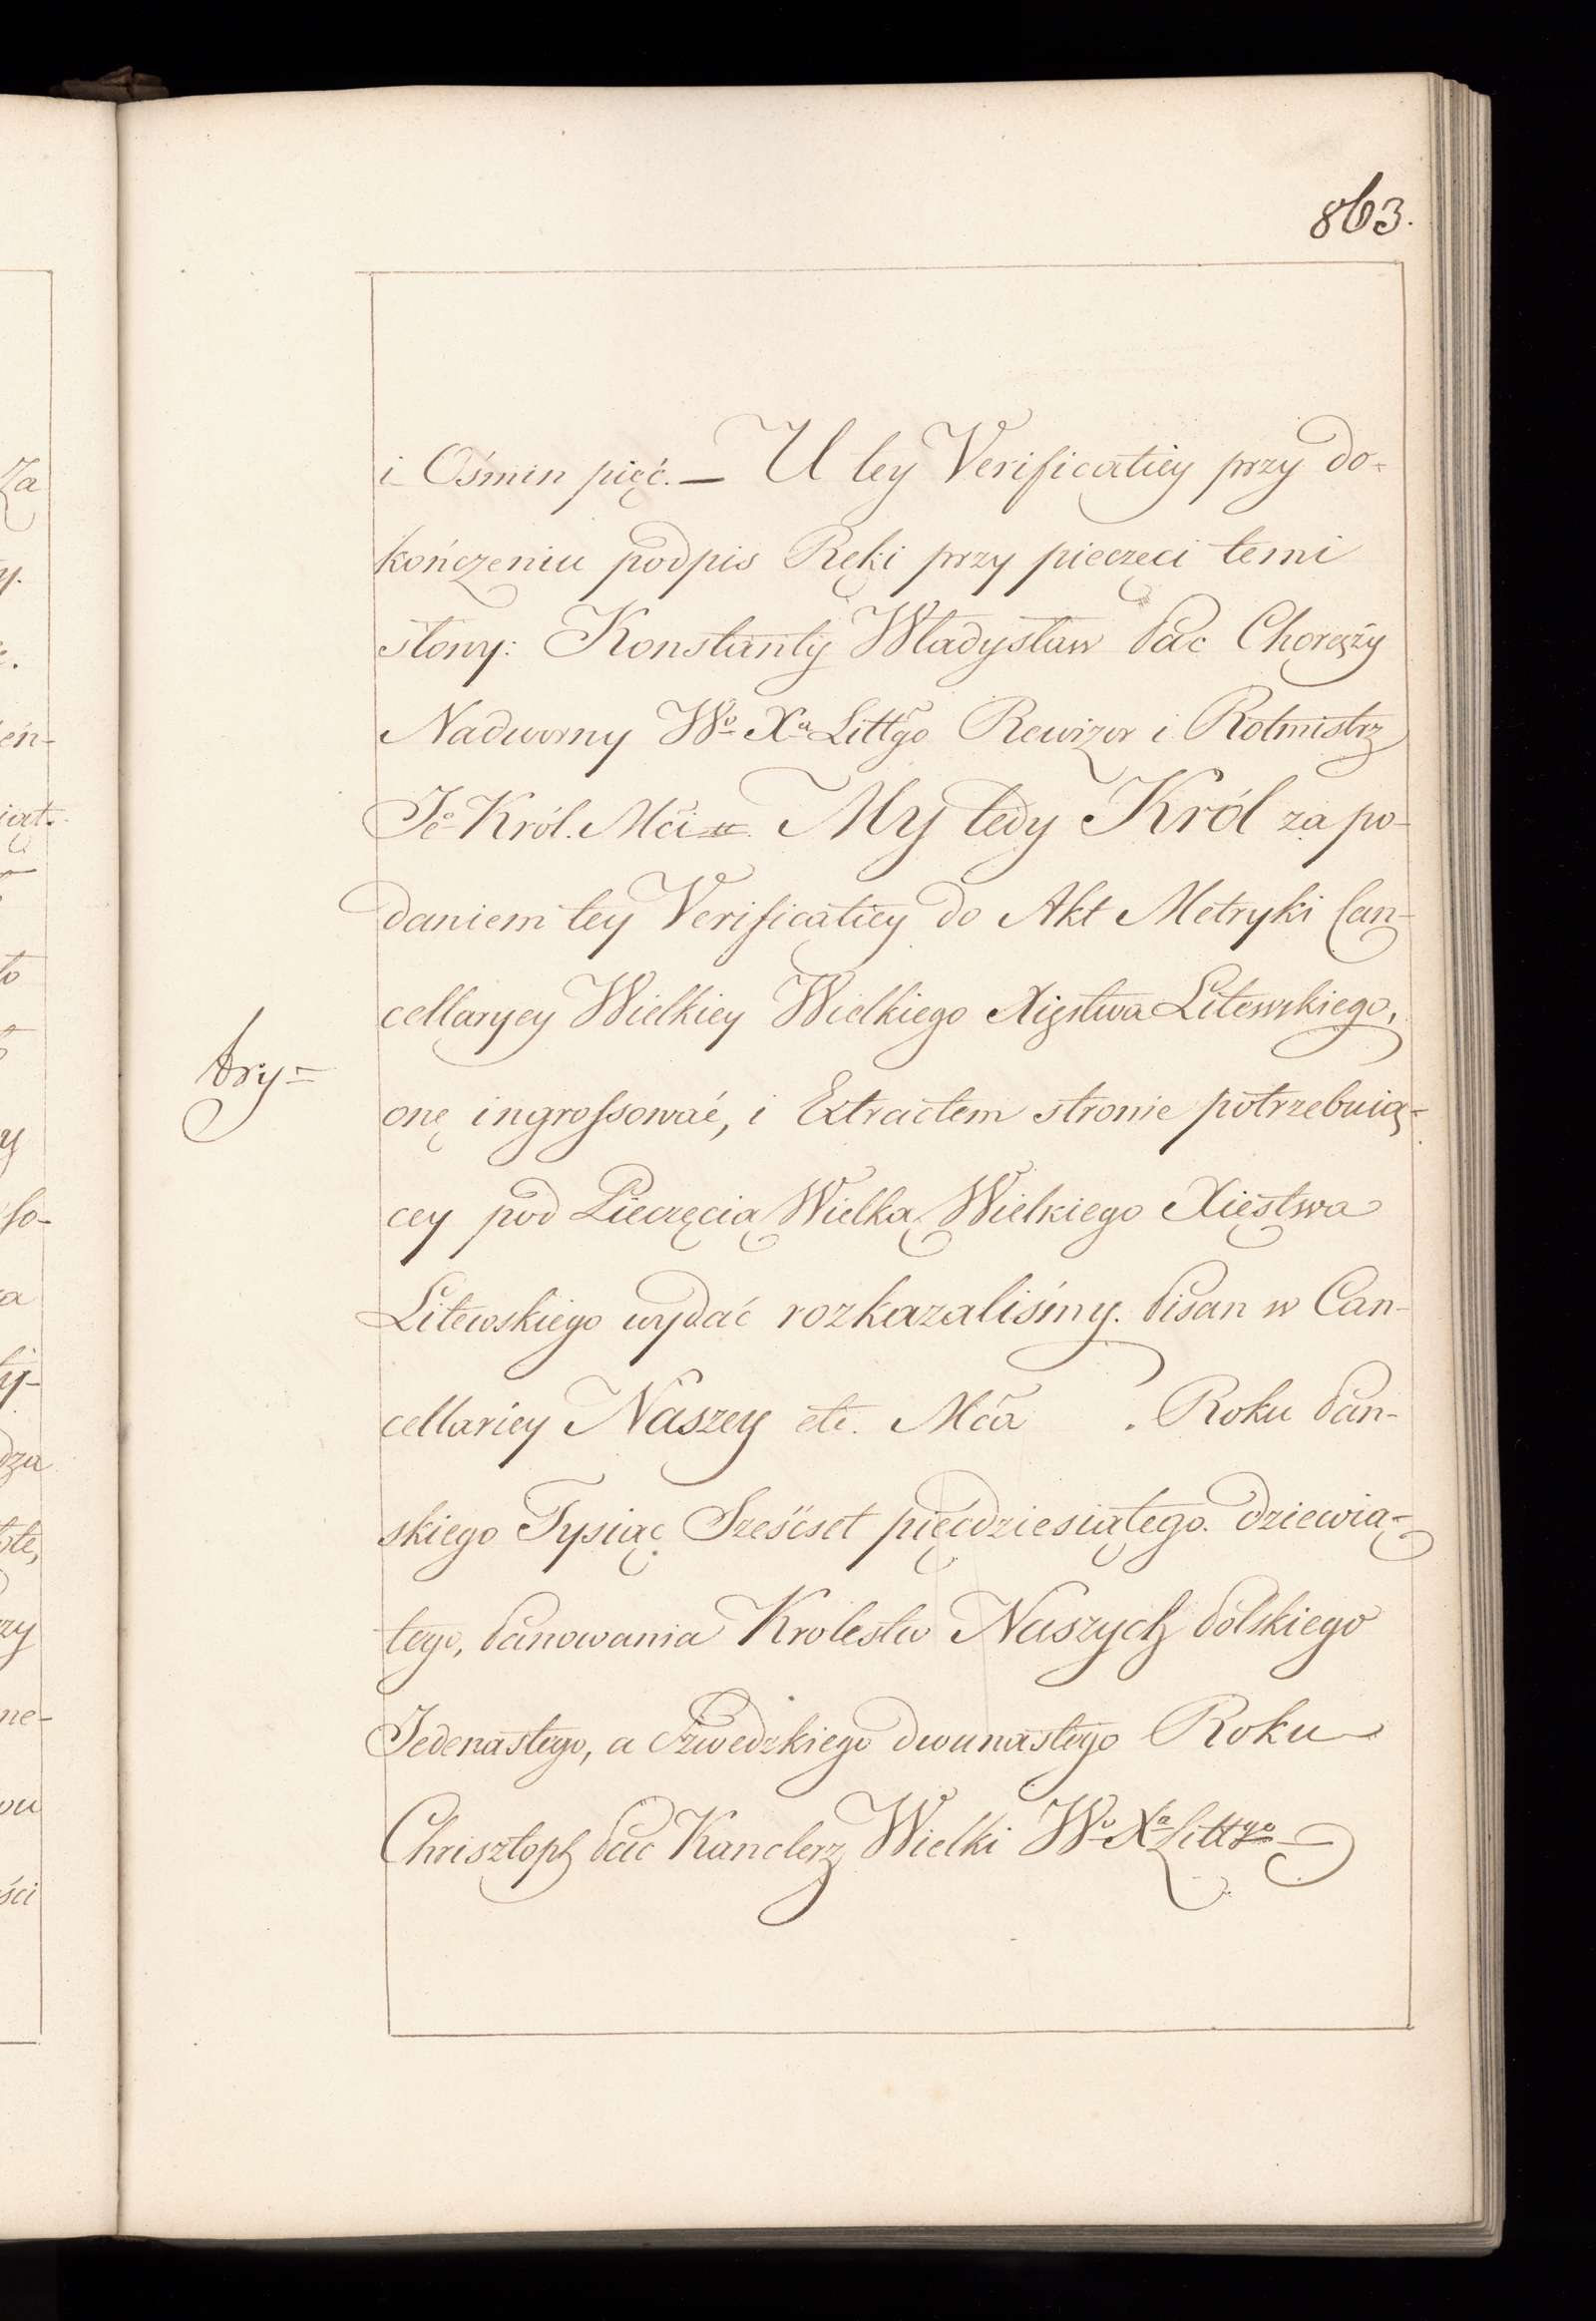 863.
i Ośmin pięć. — U tey Verificatiey przy do-
kończeniu podpis Ręki przy pieczęci temi
słowy: Konstanty Władysław Pac Chorąży
Nadworny Wº Xª Littgo Rewizor i Rotmistrz
Jeº Król. Mći My tedy Król za po-
daniem tey Verificatiey do Akt Metryki Can-
cellaryey Wielkiey Wielkiego Xięstwa Litewskiego,
onę ingrossować, i Extractem stronie potrzebuią-
cey pod Pieczęcią Wielką Wielkiego Xięstwa
Litewskiego wydać rozkazaliśmy. Pisan w Can-
cellariey Naszey etc. Mća . Roku Pań-
skiego Tysiąc Sześćset pięćdziesiątego dziewią-
tego, Panowania Krolestw Naszych Polskiego
Jedenastego, a Szwedzkiego dwunastego Roku
Chrisztoph Pac Kanclerz Wielki Wº Xª Littgo
try=
Za
y.
eń-
iat.
to
y
so-
a
ty-
dza
te,
zy
ne-
wu
ści